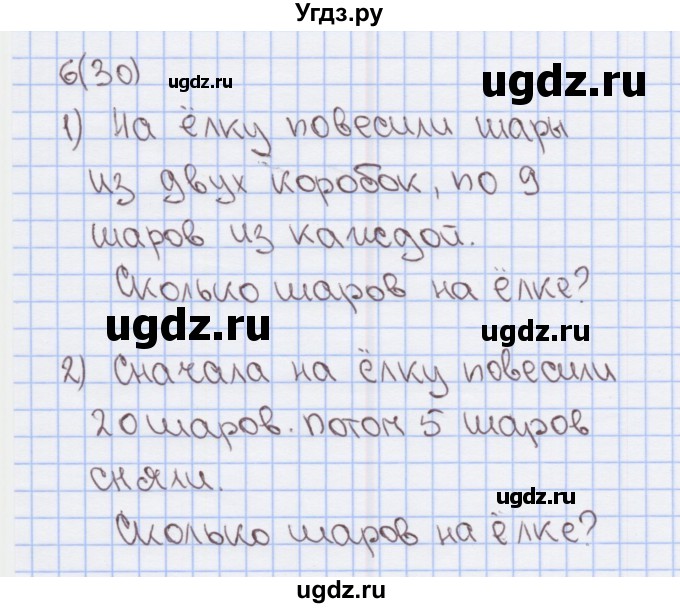 Угдз.ру
6(30)
ugdz.ru
ugdz.ru
1) На ёлку повесили шары
из двух коробок, по 9
шаров из каждой.
Сколько шаров на ёлке?
ugdz.ru
ugdz.ru
2) Сначала на ёлку повесили
20 шаров. потом 5 шаров
сняли.
ugdz.ru
Сколько шаров на ёлке?
ugdz.ru